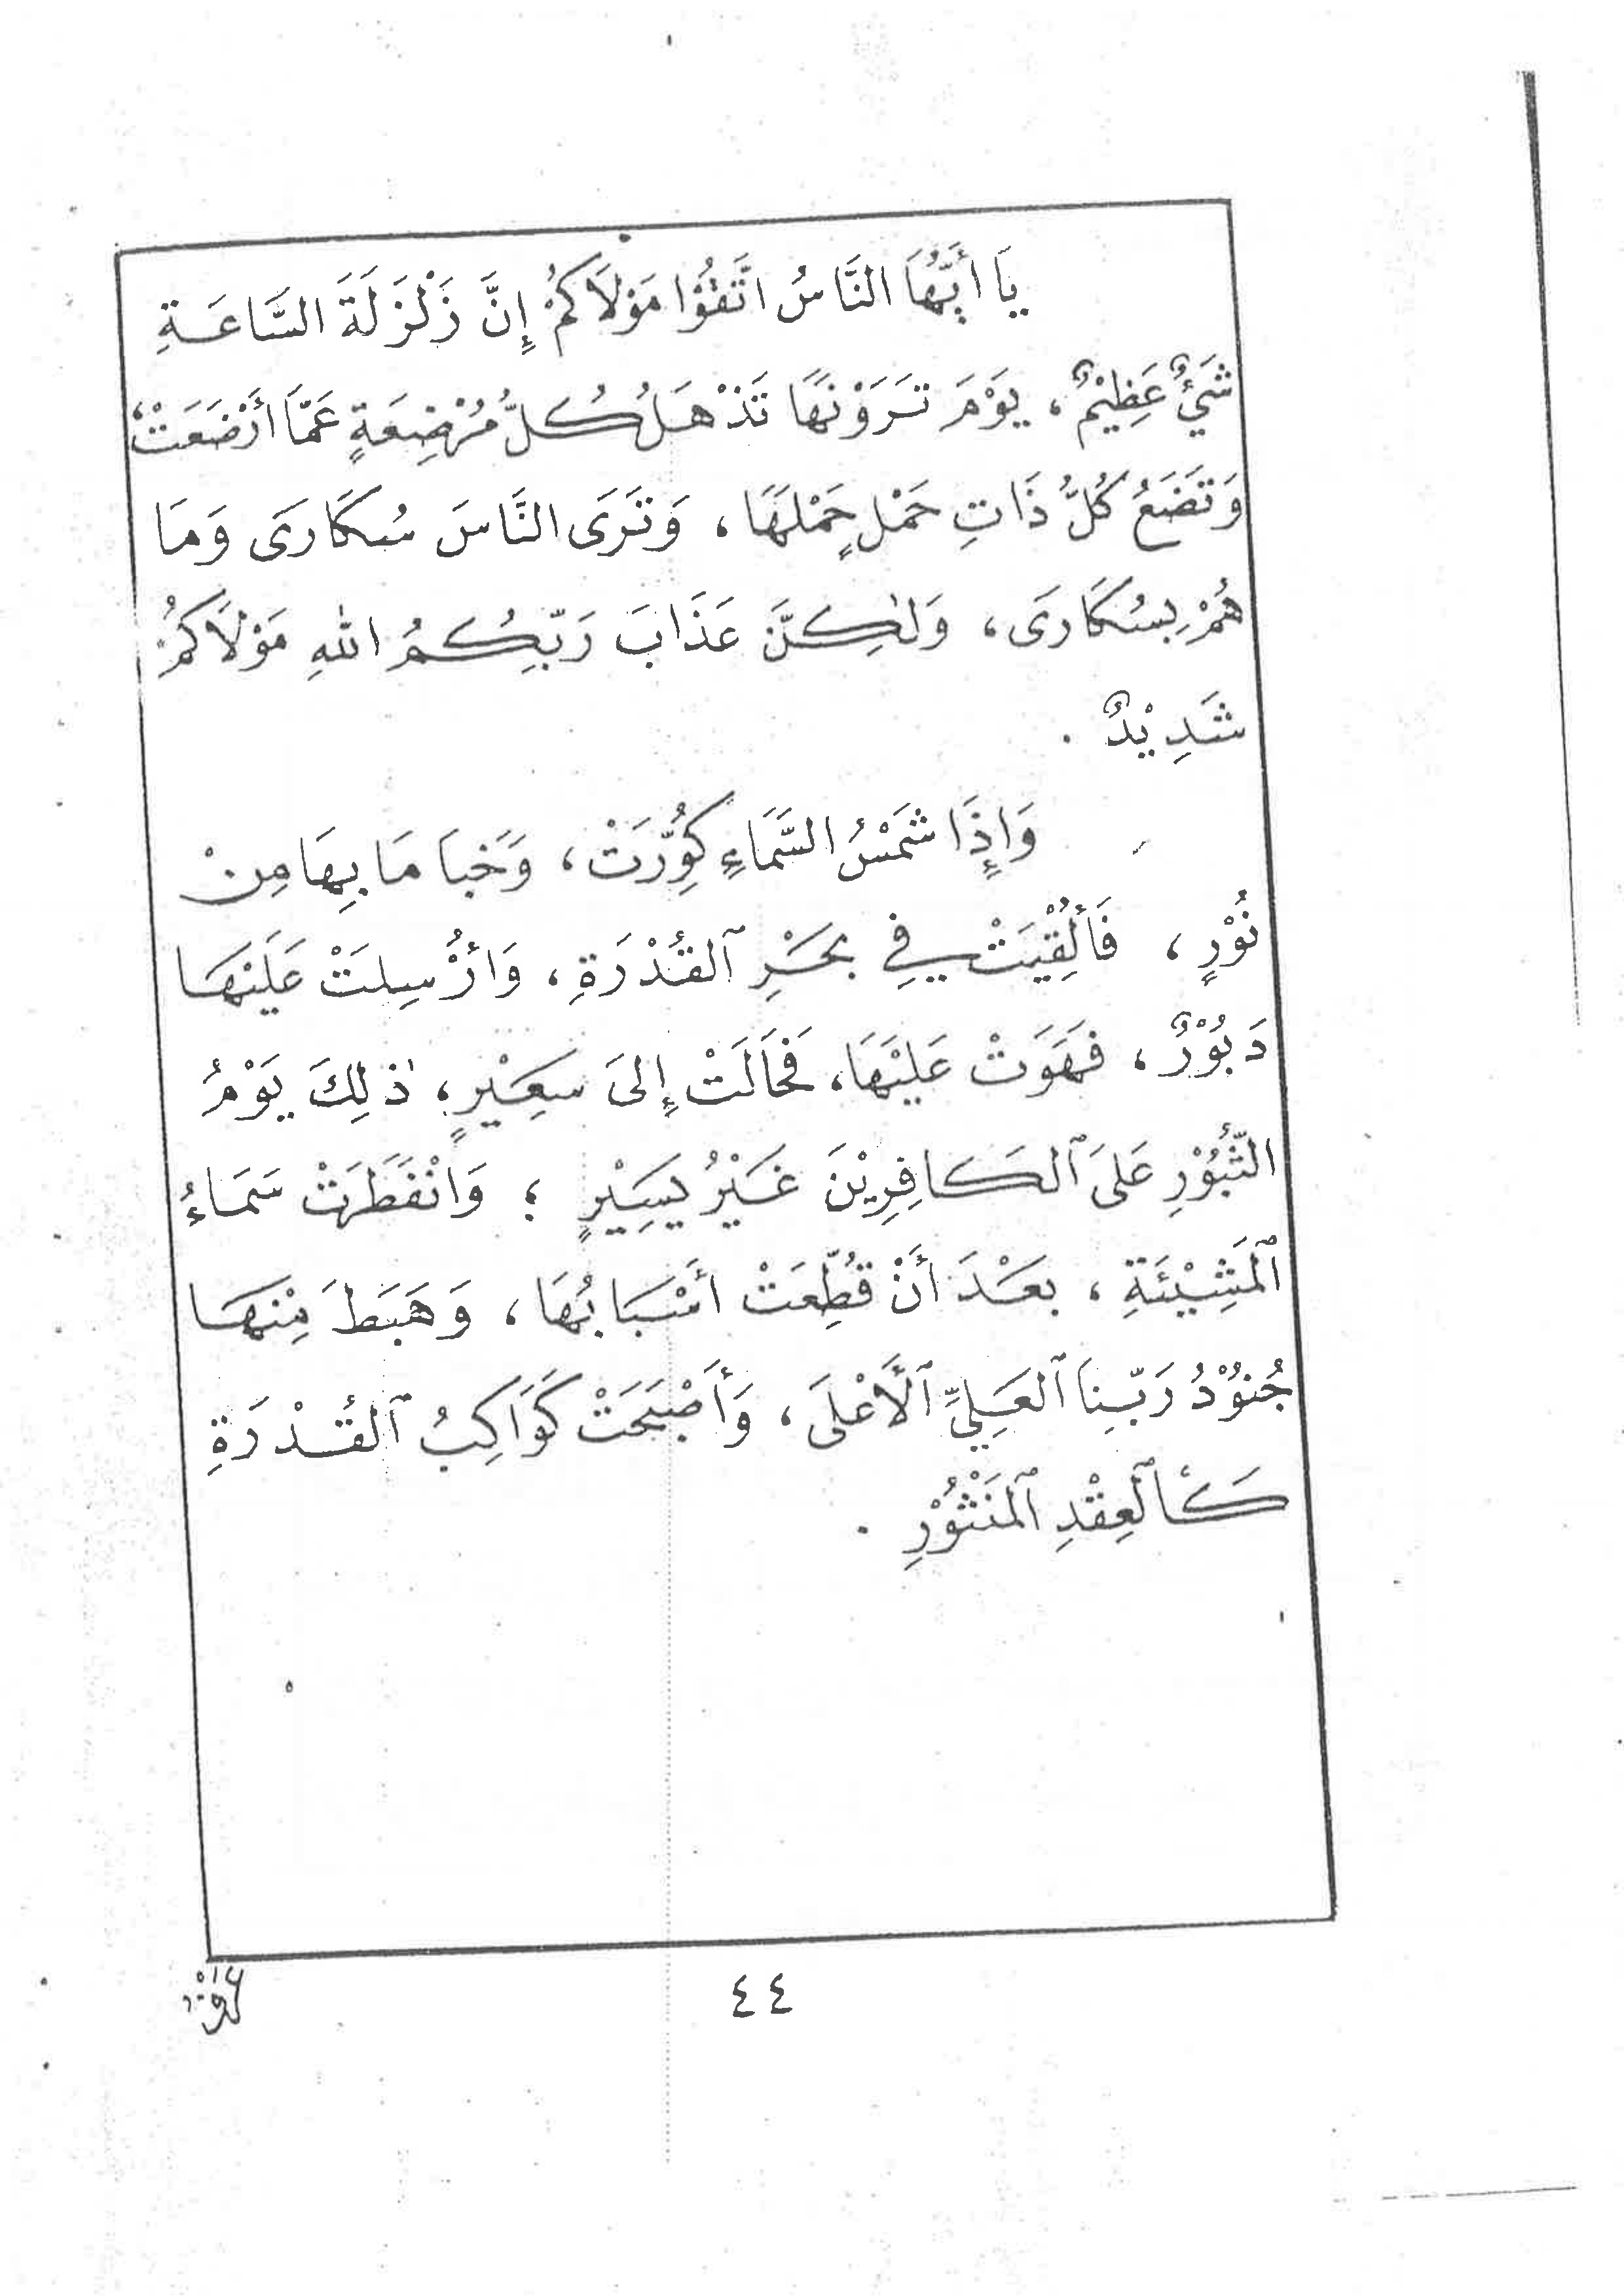 يَا أَيُّهَا النَّاسُ اتَّقُوْا مَوْلَاكُمْ إِنَّ زَلْزَلَةَ السَّاعَةِ
شَيْءٌ عَظِيْمٌ ، يَوْمَ تَرَوْنَهَا تَذْهَلُ كُلُّ مُرْضِعَةٍ عَمَّا أَرْضَعَتْ ،
وَتَضَعُ كُلُّ ذَاتِ حَمْلٍ حَمْلَهَا ، وَتَرَى النَّاسَ سُكَارَى وَمَا
هُمْ بِسُكَارَى ، وَلٰكِنَّ عَذَابَ رَبِّكُمُ اللهِ مَوْلَاكُمْ
شَدِيْدٌ .
وَإِذَا شَمْسُ السَّمَاءِ كُوِّرَتْ ، وَخَبَا مَا بِهَا مِنْ
نُوْرٍ ، فَأُلْقِيَتْ فِي بَحْرِ ٱلقُدْرَةِ ، وَأُرْسِلَتْ عَلَيْهَا
دَبُوْرٌ ، فَهَوَتْ عَلَيْهَا ، فَحَالَتْ إِلَى سَعِيْرٍ ، ذٰلِكَ يَوْمُ
الثُّبُوْرِ عَلَى ٱلكَافِرِيْنَ غَيْرُ يَسِيْرٍ ؛ وَانْفَطَرَتْ سَمَاءُ
ٱلمَشِيْئَةِ ، بَعْدَ أَنْ قُطِّعَتْ أَسْبَابُهَا ، وَهَبَطَ مِنْهَا
جُنُوْدُ رَبِّنَا ٱلعَلِيِّ ٱلأَعْلَى ، وَأَصْبَحَتْ كَوَاكِبُ ٱلقُدْرَةِ
كَٱلعِقْدِ ٱلمَنْثُوْرِ .
٤٤